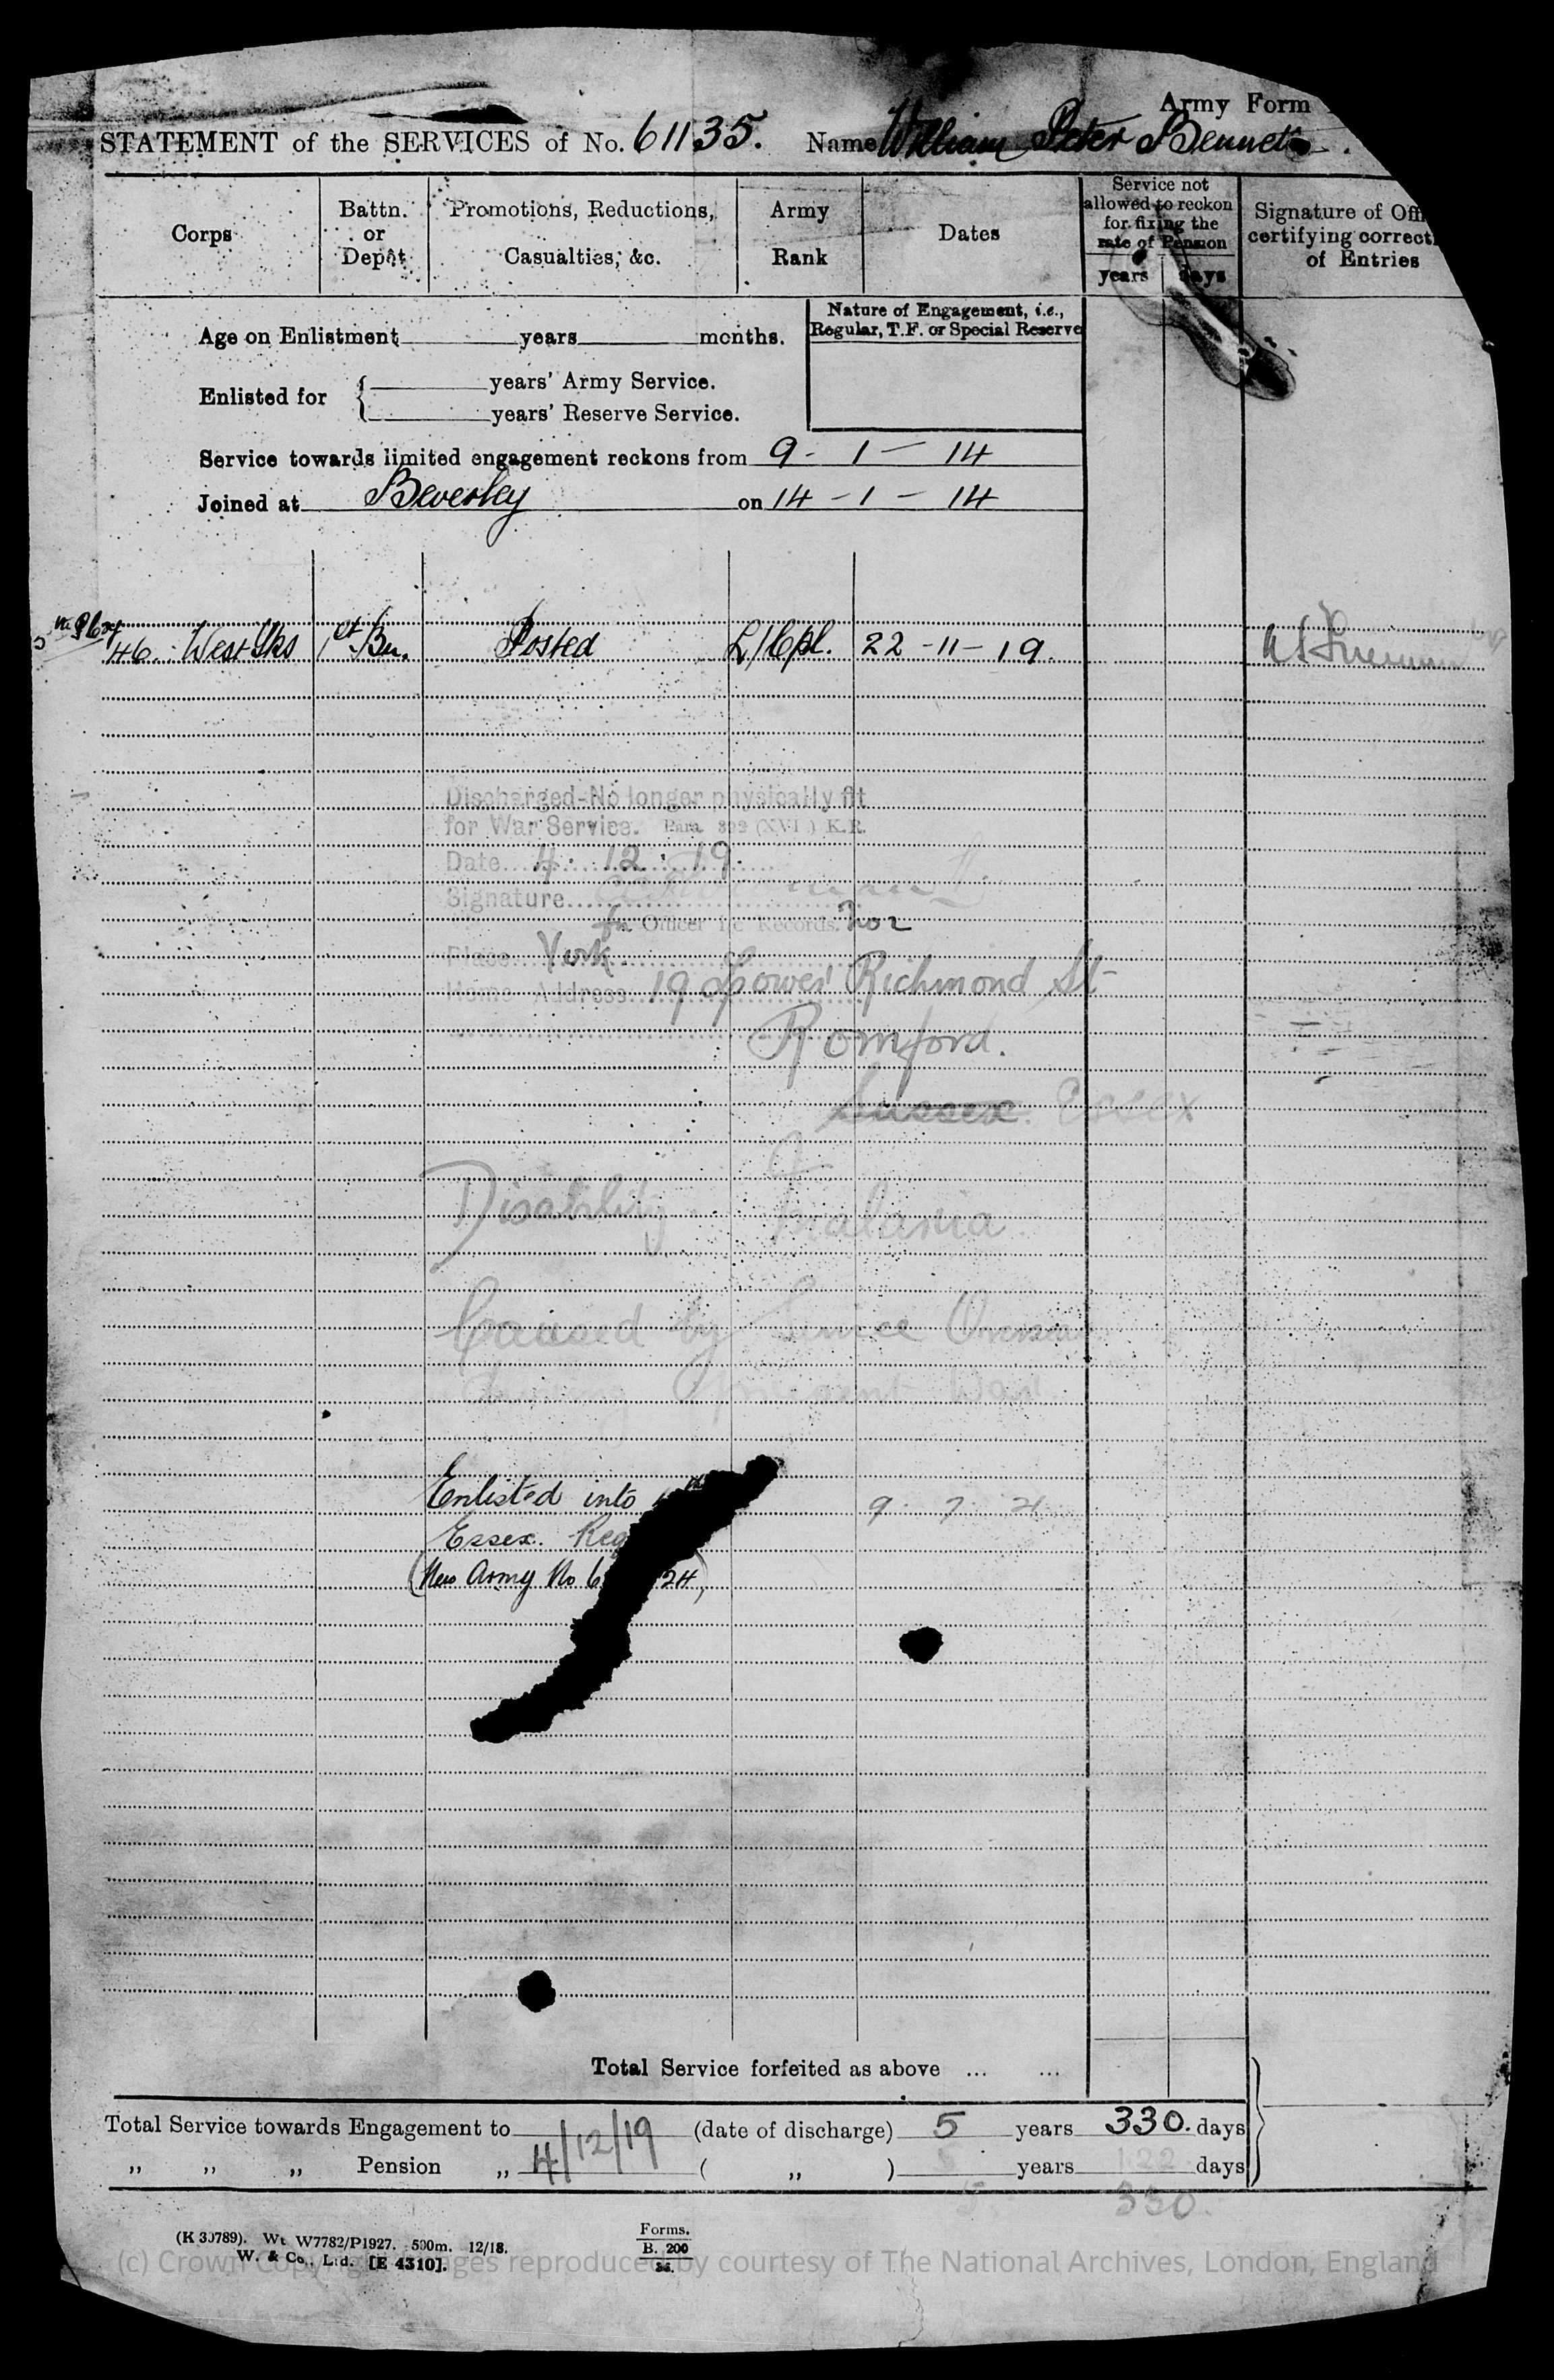 Army Form
STATEMENT of the SERVICES of No. 61135. Name William Peter Bennett.
Corps
Battn. or Depôt
Promotions, Reductions, Casualties, &c.
Army Rank
Dates
Service not allowed to reckon for fixing the rate of Pension
years days
Signature of Off
certifying correct
of Entries
Age on Enlistment years months.
Nature of Engagement, i.e., Regular, T.F. or Special Reserve
Enlisted for { years' Army Service.
years' Reserve Service.
Service towards limited engagement reckons from 9 - 1 - 14
Joined at Beverley on 14 - 1 - 14
West Yks 1st Bn. Posted L/Cpl. 22 - 11 - 19.
Discharged-No longer physically fit
for War Service. Para 392 (XVI) K.R.
Date 4 . 12 . 19.
Signature
for Officer i/c Records. No 2
Place York
Home Address 19 Lower Richmond St
Romford.
Sussex. Essex
Disability Malaria
Caused by Service Overseas
during present War
Enlisted into 9 . 7 . 21
Essex. Reg
(New Army No 6 24)
Total Service forfeited as above ... ...
Total Service towards Engagement to 4/12/19 (date of discharge) 5 years 330. days
,, ,, ,, Pension ,, ( ,, ) 5 years 122 days
5 330.
(K 30789). Wt. W7782/P1927. 500m. 12/18.
W. & Co., Ltd. [E 4310].
Forms.
B. 200
(c) Crown Copyright Images reproduced by courtesy of The National Archives, London, England